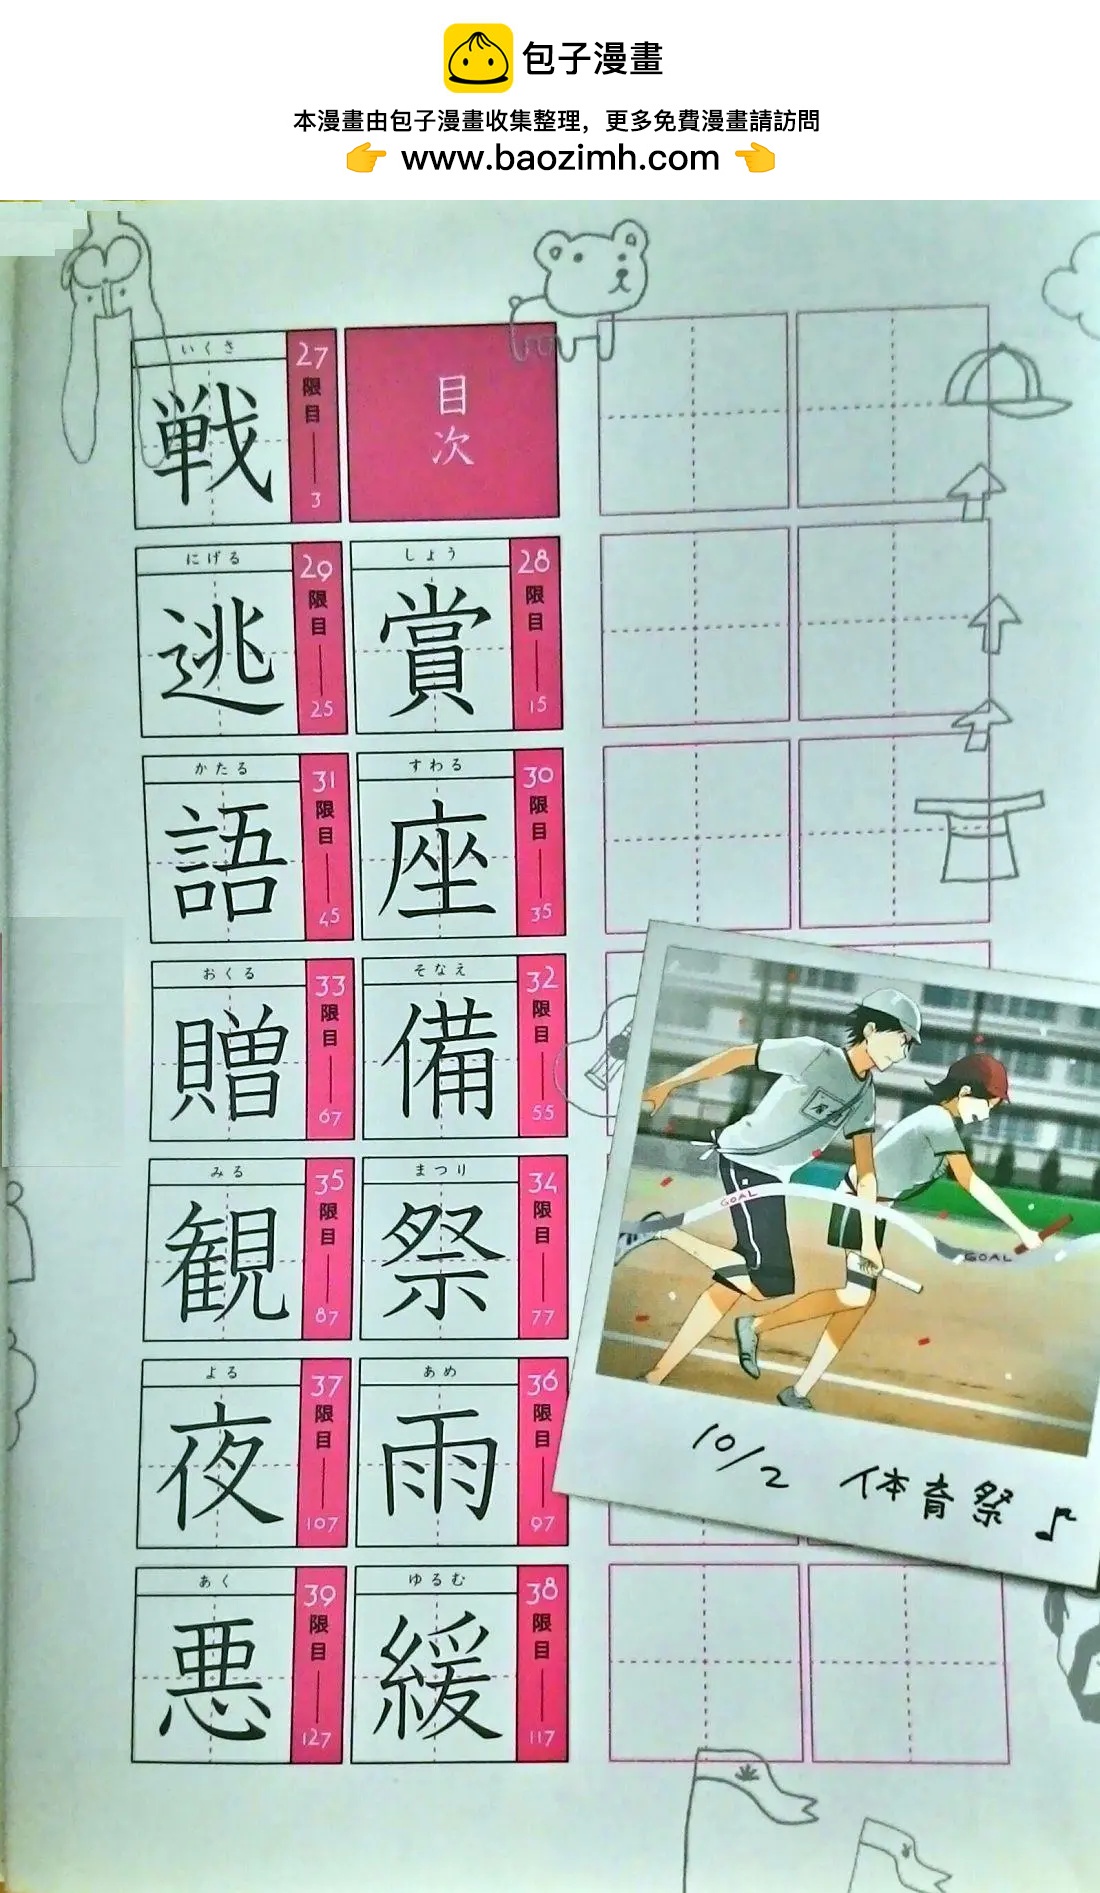 包子漫畫
本漫畫由包子漫畫收集整理，更多免費漫畫請訪問
👉 www.baozimh.com 👈
目次
27限目 3
いくさ
戦
28限目 15
しょう
賞
29限目 25
にげる
逃
30限目 35
すわる
座
31限目 45
かたる
語
32限目 55
そなえ
備
33限目 67
おくる
贈
34限目 77
まつり
祭
35限目 87
みる
観
36限目 97
あめ
雨
37限目 107
よる
夜
38限目 117
ゆるむ
緩
39限目 127
あく
悪
GOAL
GOAL
10/2 体育祭♪